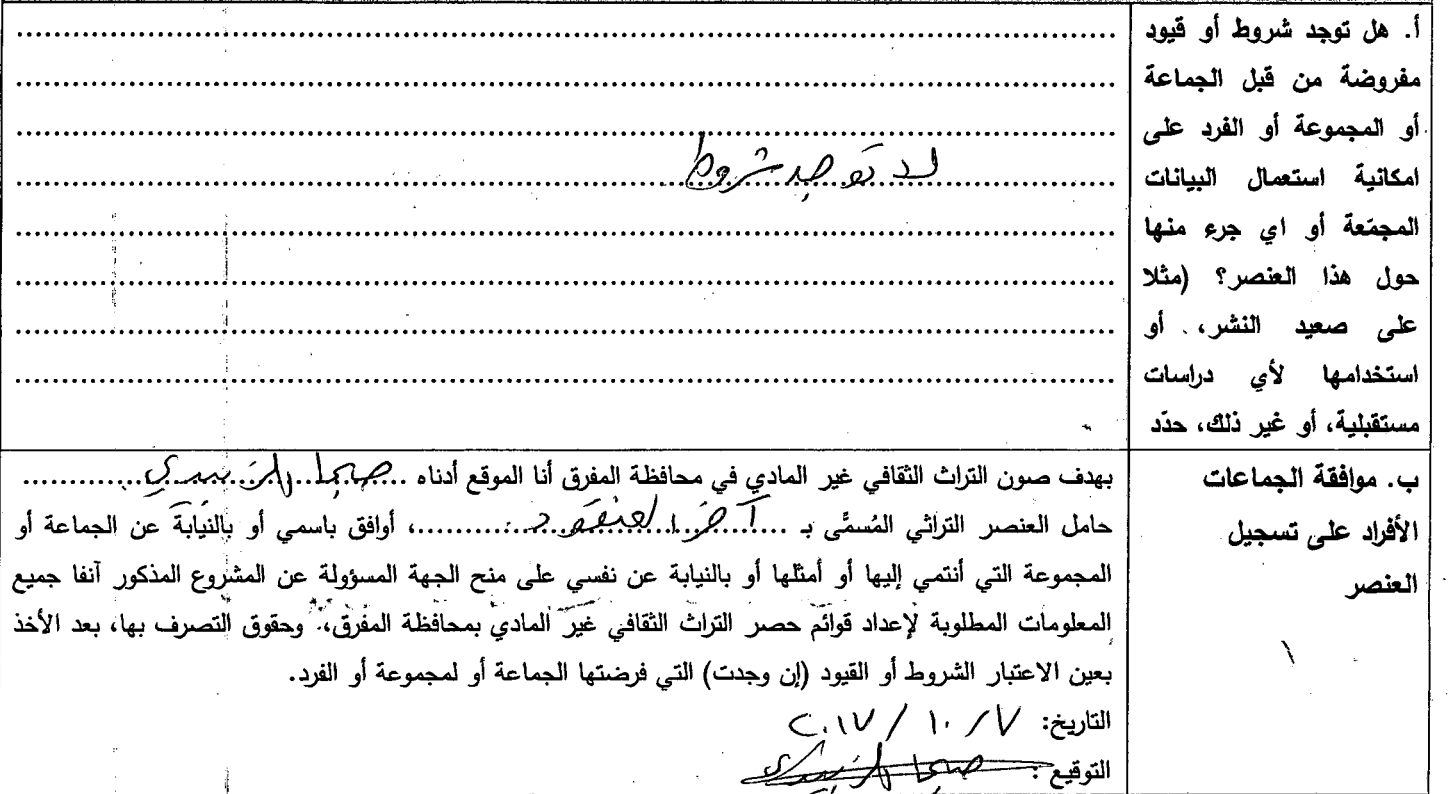 أ. هل توجد شروط أو قيود
مفروضة من قبل الجماعة
أو المجموعة أو الفرد على
امكانية استعمال البيانات
المجمّعة أو اي جرء منها
حول هذا العنصر؟ (مثلا
على صعيد النشر، أو
استخدامها لأي دراسات
مستقبلية، أو غير ذلك، حدّد
لا توجد شروط
ب. موافقة الجماعات
الأفراد على تسجيل
العنصر
بهدف صون التراث الثقافي غير المادي في محافظة المفرق أنا الموقع أدناه
حامل العنصر التراثي المُسمَّى بـ آخر العنقود، أوافق باسمي أو بالنيابة عن الجماعة أو
المجموعة التي أنتمي إليها أو أمثلها أو بالنيابة عن نفسي على منح الجهة المسؤولة عن المشروع المذكور آنفا جميع
المعلومات المطلوبة لإعداد قوائم حصر التراث الثقافي غير المادي بمحافظة المفرق، وحقوق التصرف بها، بعد الأخذ
بعين الاعتبار الشروط أو القيود (إن وجدت) التي فرضتها الجماعة أو لمجموعة أو الفرد.
التاريخ: ٧/ ١٠ / ٢٠١٧
التوقيع :